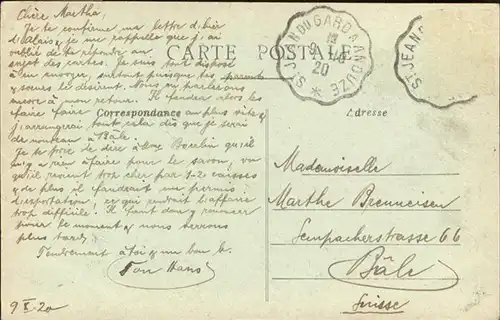 Chère Martha,
Je te confirme ma lettre d'hier
d'Alais, je me rappelle que j'ai
oublié de te répondre au
sujet des cartes. Je suis tout disposé
à en envoyer, surtout puisque tes parents
& sœurs le désirent. Nous en parlerons
encore à mon retour. Il faudra alors les
faire faire au plus vite &
j'arrangerai tout cela dès que je serai
de nouveau à Bâle.
Je te prie de dire à Mme qu'il
n'y a rien à faire pour le savon, vu
qu'il revient trop cher par 1-2 caisses
& de plus il faudrait un permis
d'exportation, ce qui rendrait l'affaire
trop difficile. Il faut donc y renoncer
pour le moment & nous verrons
plus tard.
Tendrement à toi & un bon b.
Ton Hans
9 X 20
CARTE POSTALE
Correspondance
Adresse
ST JEAN DU GARD A ANDUZE
20
ST JEAN D
Mademoiselle
Marthe Brenneisen
Sempacherstrasse 66
Bâle
Suisse